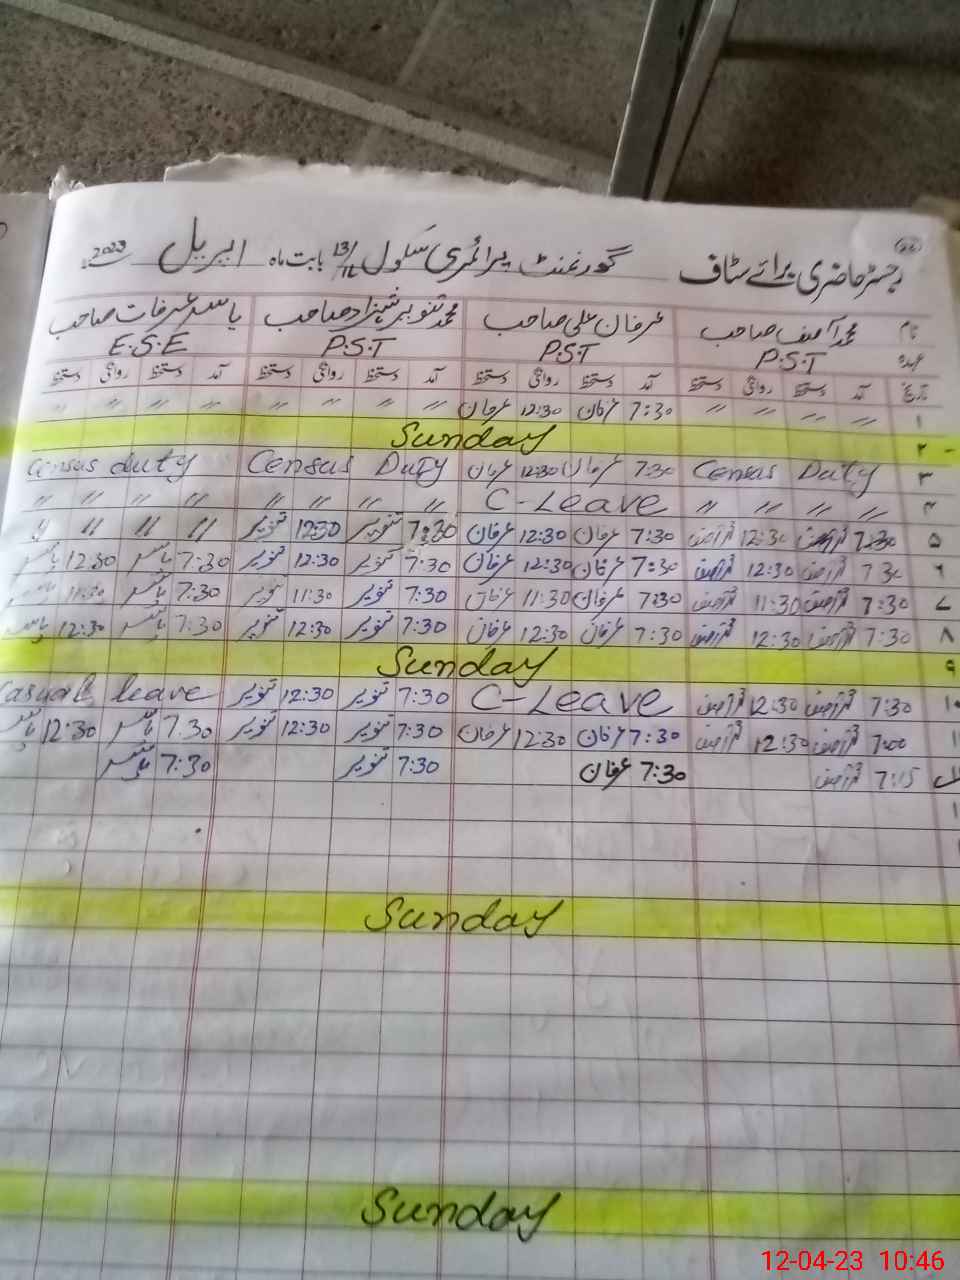 رجسٹر حاضری برائے سٹاف گورنمنٹ پرائمری سکول 13/1L بابت ماہ اپریل 2023
نام محمد آصف صاحب عرفان علی صاحب محمد تنویر شہزاد صاحب یاسر عرفات صاحب
عہدہ P.S.T P.S.T P.S.T E.S.E
تاریخ آمد دستخط روانگی دستخط آمد دستخط روانگی دستخط آمد دستخط روانگی دستخط آمد دستخط روانگی دستخط
۱ 〃 〃 〃 〃 7:30 عرفان 12:30 عرفان 〃 〃 〃 〃 〃 〃 〃 〃
۲ Sunday
۳ Census Duty 7:30 عرفان 12:30 عرفان Census Duty Census duty
۴ 〃 〃 〃 〃 C-Leave 〃 〃 〃 〃 〃 〃 〃 〃
۵ 7:30 12:30 7:30 عرفان 12:30 عرفان 7:30 تنویر 12:30 تنویر 〃 〃 〃 〃
۶ 7:30 12:30 7:30 عرفان 12:30 عرفان 7:30 تنویر 12:30 تنویر 7:30 یاسر 12:30 یاسر
۷ 7:30 11:30 7:30 عرفان 11:30 عرفان 7:30 تنویر 11:30 تنویر 7:30 یاسر 11:30
۸ 7:30 12:30 7:30 عرفان 12:30 عرفان 7:30 تنویر 12:30 تنویر 7:30 یاسر 12:30 یاسر
۹ Sunday
۱۰ 7:30 12:30 C-Leave 7:30 تنویر 12:30 تنویر Casual leave
7:00 12:30 7:30 عرفان 12:30 عرفان 7:30 تنویر 12:30 تنویر 7:30 یاسر 12:30 یاسر
7:15 7:30 عرفان 7:30 تنویر 7:30 یاسر
Sunday
Sunday
12-04-23 10:46